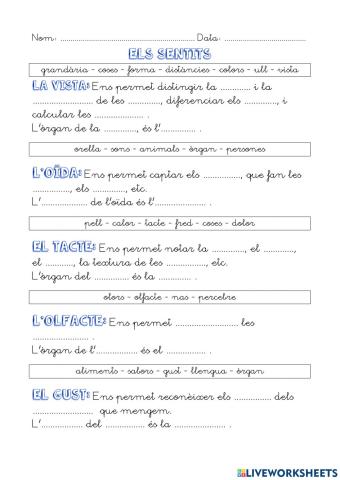 Nom: ............................................................ Data: .....................................
ELS SENTITS
grandària - coses - forma - distàncies - colors - ull - vista
LA VISTA: Ens permet distingir la ............. i la
......................... de les .............., diferenciar els .............., i
calcular les ..................... .
L'òrgan de la .............., és l'.............. .
orella - sons - animals - òrgan - persones
L'OÏDA: Ens permet captar els ................, que fan les
................, els .............., etc.
L'.................... de l'oïda és l'...................... .
pell - calor - tacte - fred - coses - dolor
EL TACTE: Ens permet notar la .............., el .............,
el ............, la textura de les ................., etc.
L'òrgan del ............... és la .............. .
olors - olfacte - nas - percebre
L'OLFACTE: Ens permet .......................... les
....................... .
L'òrgan de l'.................. és el ................. .
aliments - sabors - gust - llengua - òrgan
EL GUST: Ens permet reconèixer els ................ dels
......................... que mengem.
L'.................. del ................ és la ...................... .
LIVEWORKSHEETS